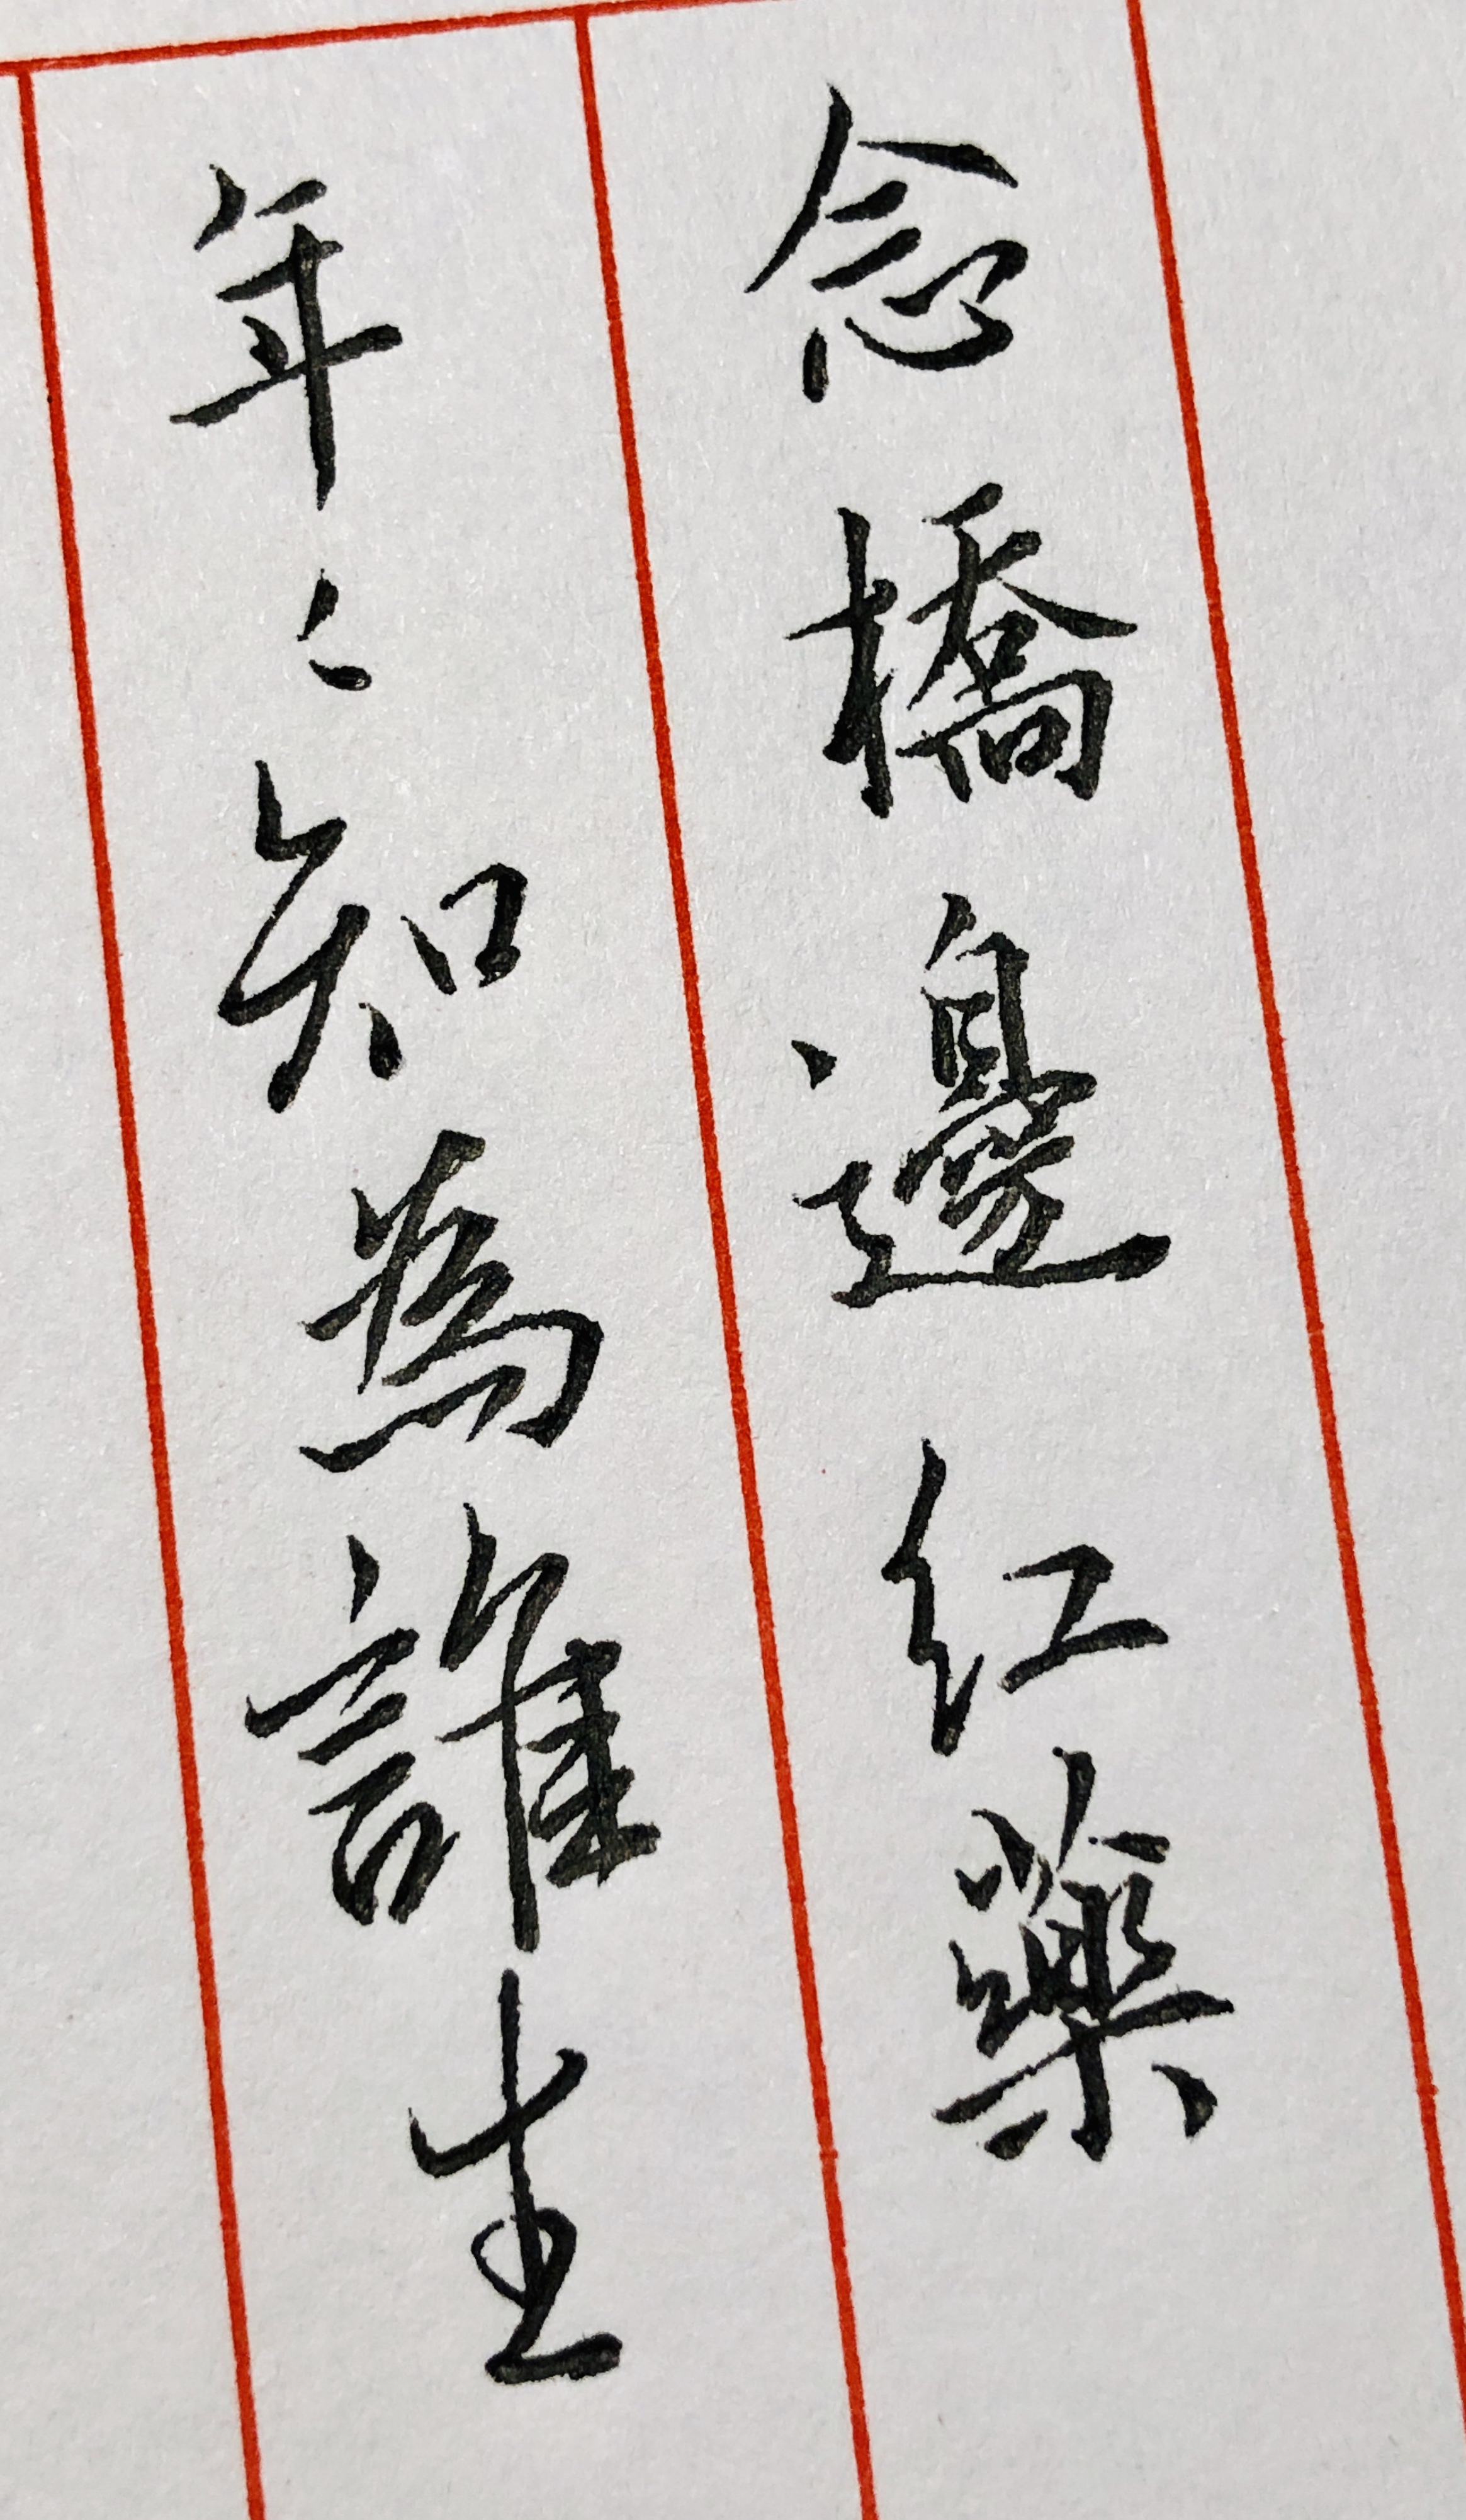 念橋邊紅藥
年〻知為誰生